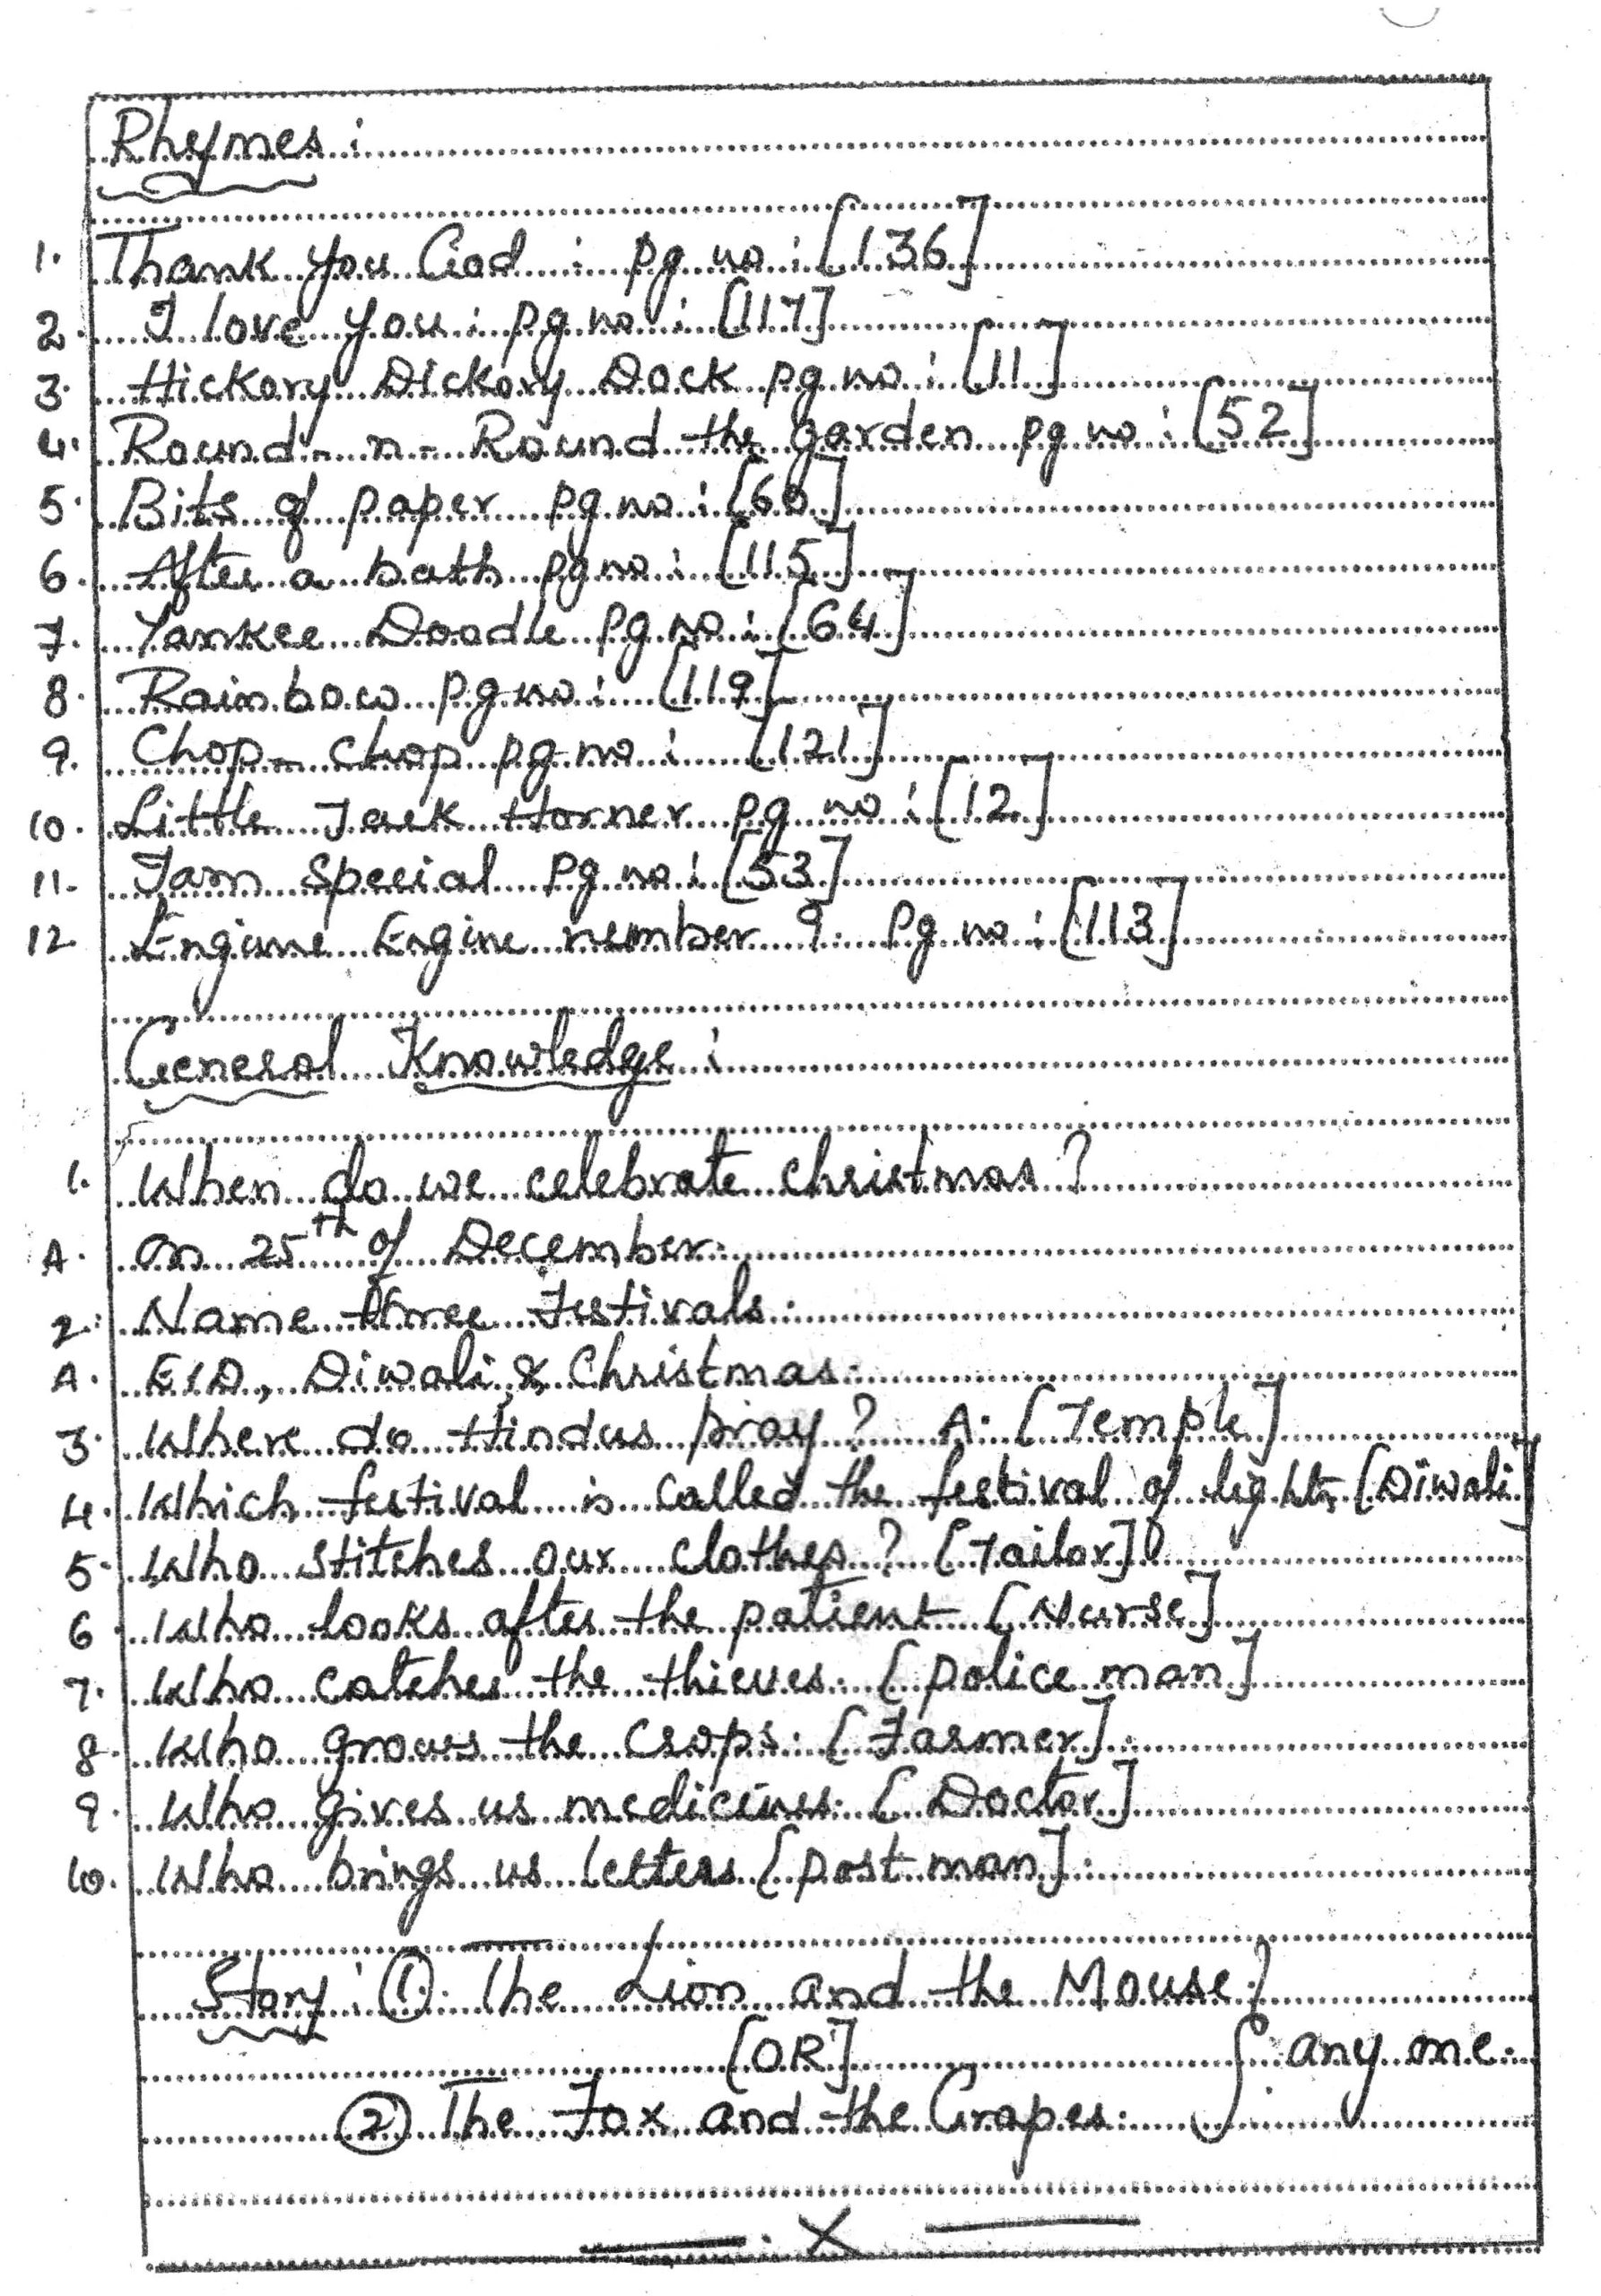 Rhymes :
1. Thank you God : pg no : [136]
2. I love you : pg no : [117]
3. Hickory Dickory Dock pg no : [11]
4. Round - n - Round the garden pg no : [52]
5. Bits of paper pg no : [66]
6. After a bath pg no : [115]
7. Yankee Doodle pg no : [64]
8. Rainbow pg no : [119]
9. Chop - chop pg no : [121]
10. Little Jack Horner pg no : [12]
11. Jam Special pg no : [53]
12 Engine Engine number 9. pg no : [113]
General Knowledge :
1. When do we celebrate christmas ?
A. On 25th of December.
2. Name three Festivals.
A. EID, Diwali, & Christmas.
3. Where do Hindus pray ? A: [Temple]
4. Which festival is called the festival of lights [Diwali]
5. Who stitches our clothes ? [Tailor]
6 Who looks after the patient [Nurse]
7. Who catches the thieves. [police man]
8. Who grows the crops. [Farmer].
9. Who gives us medicines. [Doctor]
10. Who brings us letters [post man].
Story : ①. The Lion and the Mouse.
[OR] any one.
② The Fox and the Grapes.
X